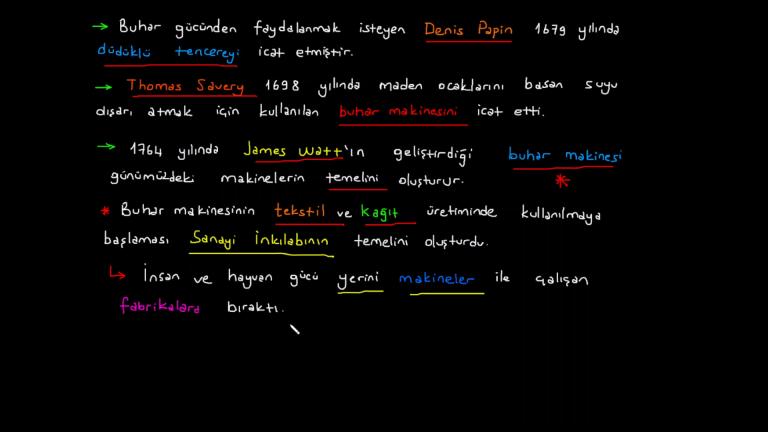 → Buhar gücünden faydalanmak isteyen Denis Papin 1679 yılında
düdüklü tencereyi icat etmiştir.
→ Thomas Savery 1698 yılında maden ocaklarını basan suyu
dışarı atmak için kullanılan buhar makinesini icat etti.
→ 1764 yılında James Watt'ın geliştirdiği buhar makinesi
günümüzdeki makinelerin temelini oluşturur. *
* Buhar makinesinin tekstil ve kağıt üretiminde kullanılmaya
başlaması Sanayi İnkılabının temelini oluşturdu.
↳ İnsan ve hayvan gücü yerini makineler ile çalışan
fabrikalara bıraktı.